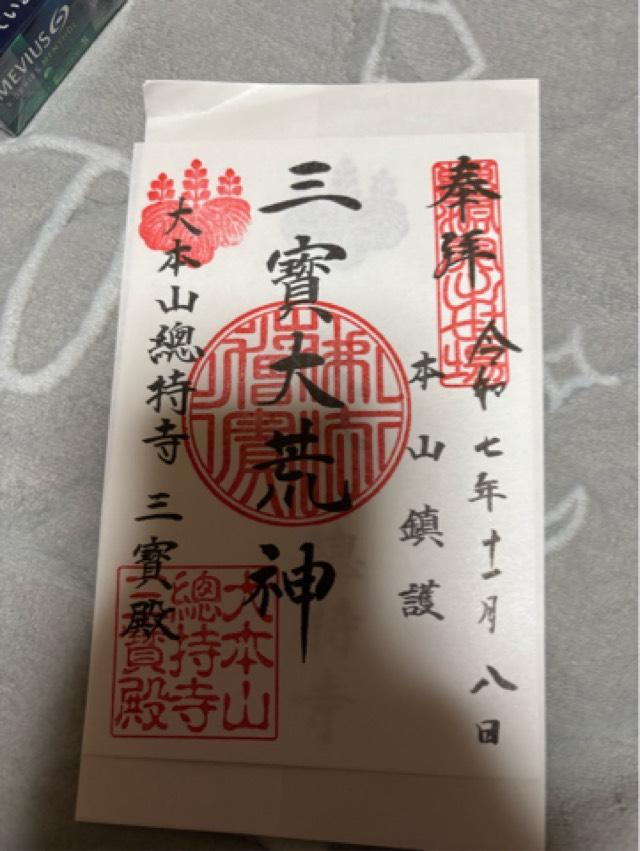 奉拜
令和七年十一月八日
本山鎮護
三寶大荒神
大本山總持寺 三寶殿
佛法僧寶
大本山
總持寺
三寶殿
MEVIUS